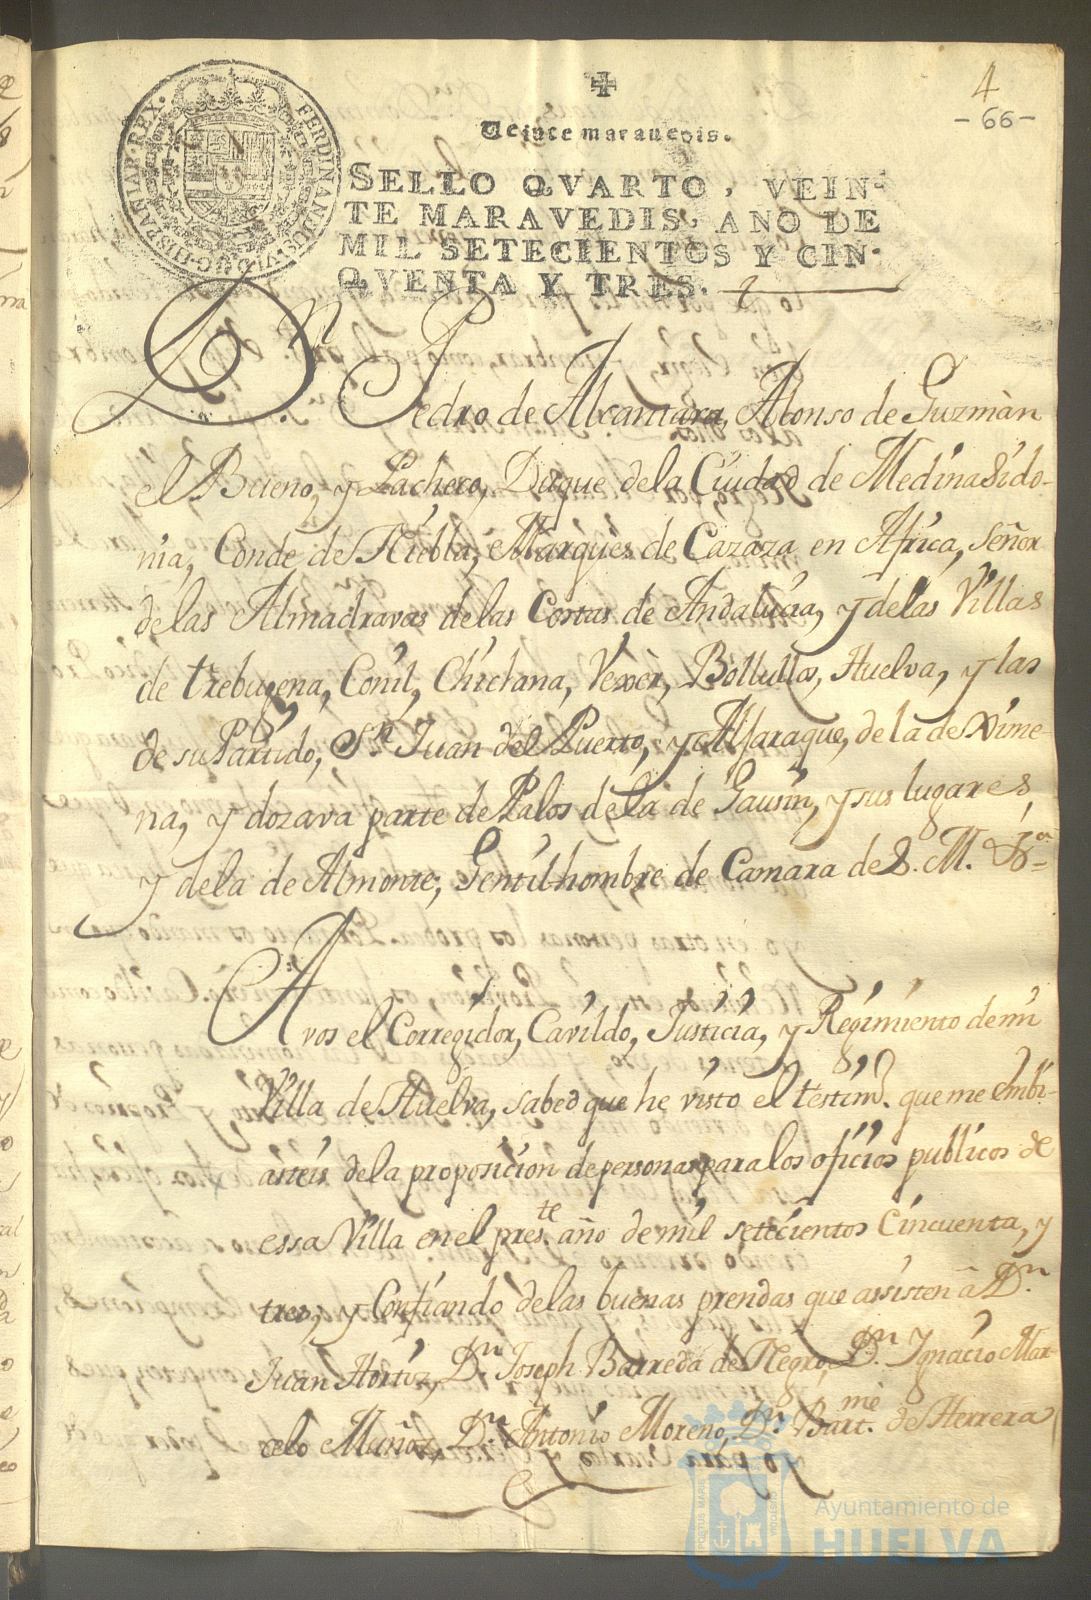 4
-66-
Veinte marauedis.
SELLO QVARTO, VEIN-
TE MARAVEDIS, AÑO DE
MIL SETECIENTOS Y CIN-
QVENTA Y TRES.
FERDINANDUS·VI·D·G·HISPANIAR·REX·
D.n Pedro de Alcantara, Alonso de Guzmàn
el Bueno, y Pacheco, Duque de la Ciudad de Medina Sido-
nia, Conde de Niebla, Marques de Cazaza en Africa, Señor
de las Almadravas de las Costas de Andalucia, y de las Villas
de trebugena, Conil, Chiclana, Vexèr, Bollullos, Huelva, y las
de su Partido, S.n Juan del Puerto, y Alfaraque, de la de Xime-
na, y dozava parte de Palos de la de Gausin, y sus lugares,
y de la de Almonte, Gentilhombre de Camara de S. M.
A vos el Corregidor, Cavildo, Justicia, y Regimiento de mi
Villa de Huelva, sabed que he visto el testim.o que me embi-
asteis de la proposicion de personas para los oficios publicos de
essa Villa en el pres.te año de mil setecientos Cincuenta, y
tres, y Confiando de las buenas prendas que assisten à D.n
Juan Hortiz, D.n Joseph Barreda de Negro, D.n Ygnacio Mar-
celo Muñoz, D.n Antonio Moreno, D.n Bart.me de Herrera
Ayuntamiento de
HUELVA